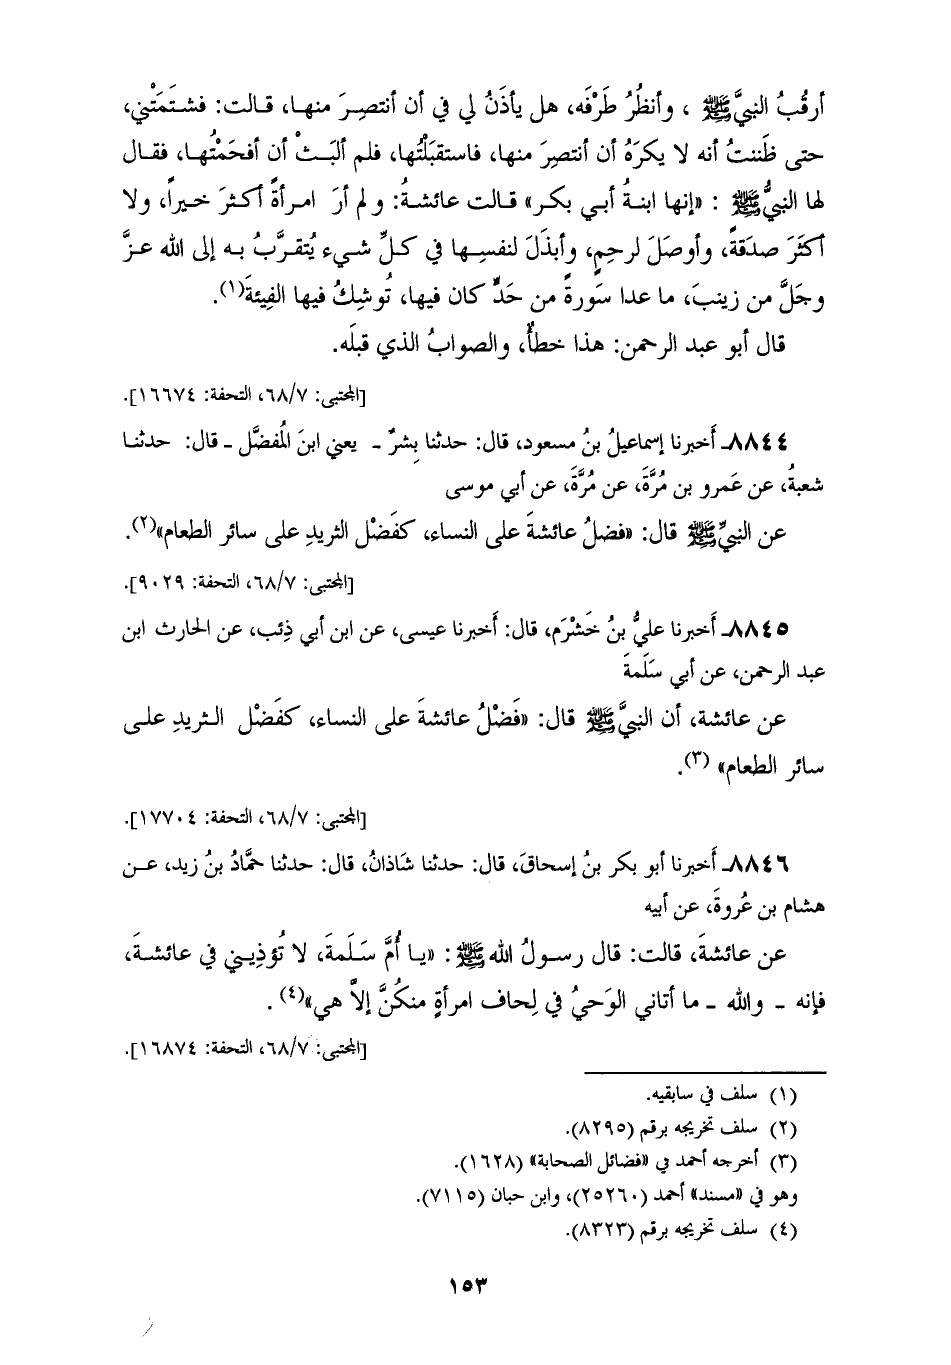 أرقُبُ النبيَّ ﷺ ، وأنظُرُ طَرْفَه، هل يأذَنُ لي في أن أنتصِرَ منها، قالت: فشتَمَتْني،
حتى ظَننتُ أنه لا يكرَهُ أن أنتصِرَ منها، فاستقبَلْتُها، فلم ألبَثْ أن أفحَمْتُها، فقال
لها النبيُّ ﷺ : «إنها ابنةُ أبي بكر» قالت عائشةُ: ولم أرَ امرأةً أكثرَ خيراً، ولا
أكثَرَ صدَقةً، وأوصَلَ لرحِمٍ، وأبذَلَ لنفسِها في كلِّ شيء يُتقرَّبُ به إلى الله عزَّ
وجَلَّ من زينبَ، ما عدا سَورةً من حَدٍّ كان فيها، تُوشِكُ فيها الفِيئةَ(١).
قال أبو عبد الرحمن: هذا خطأٌ، والصوابُ الذي قبلَه.
[المجتبى: ٦٨/٧، التحفة: ١٦٦٧٤].
٨٨٤٤ـ أَخبرنا إسماعيلُ بنُ مسعود، قال: حدثنا بِشرٌ ـ يعني ابنَ المُفضَّل ـ قال: حدثنا
شعبةُ، عن عَمرو بن مُرَّةَ، عن مُرَّةَ، عن أبي موسى
عن النبيِّ ﷺ قال: «فضلُ عائشةَ على النساء، كفَضْل الثريدِ على سائر الطعام»(٢).
[المجتبى: ٦٨/٧، التحفة: ٩٠٢٩].
٨٨٤٥ـ أَخبرنا عليُّ بنُ خَشْرَم، قال: أَخبرنا عيسى، عن ابن أبي ذِئب، عن الحارث ابن
عبد الرحمن، عن أبي سَلَمةَ
عن عائشة، أن النبيَّ ﷺ قال: «فَضْلُ عائشةَ على النساء، كفَضْل الثريدِ على
سائر الطعام» (٣).
[المجتبى: ٦٨/٧، التحفة: ١٧٧٠٤].
٨٨٤٦ـ أَخبرنا أبو بكر بنُ إسحاقَ، قال: حدثنا شَاذانُ، قال: حدثنا حمَّادُ بنُ زيد، عن
هشام بن عُروةَ، عن أبيه
عن عائشةَ، قالت: قال رسولُ الله ﷺ : «يا أُمَّ سَلَمةَ، لا تُؤذِيني في عائشةَ،
فإنه ـ والله ـ ما أتاني الوَحيُ في لِحاف امرأةٍ منكُنَّ إلاَّ هي»(٤) .
[المجتبى: ٦٨/٧، التحفة: ١٦٨٧٤].
(١) سلف في سابقيه.
(٢) سلف تخريجه برقم (٨٢٩٥).
(٣) أخرجه أحمد في «فضائل الصحابة» (١٦٢٨).
وهو في «مسند» أحمد (٢٥٢٦٠)، وابن حبان (٧١١٥).
(٤) سلف تخريجه برقم (٨٣٢٣).
١٥٣